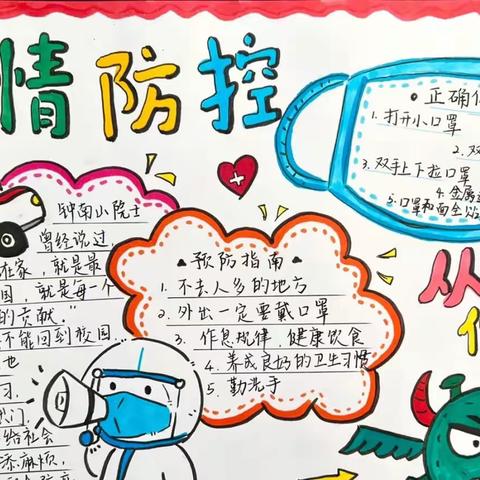 情防控
钟南山院士
曾经说过
在家，就是最
国，就是每一个
的贡献."
不能回到校园
也
习.
我们
给社会
添麻烦，
预防指南
1. 不去人多的地方
2. 外出一定要戴口罩
3. 作息规律，健康饮食
4. 养成良好的卫生习惯
5. 勤洗手
正确
1. 打开小口罩
2. 双
3. 双手上下拉口罩
4. 金属
5. 口罩和面全
从